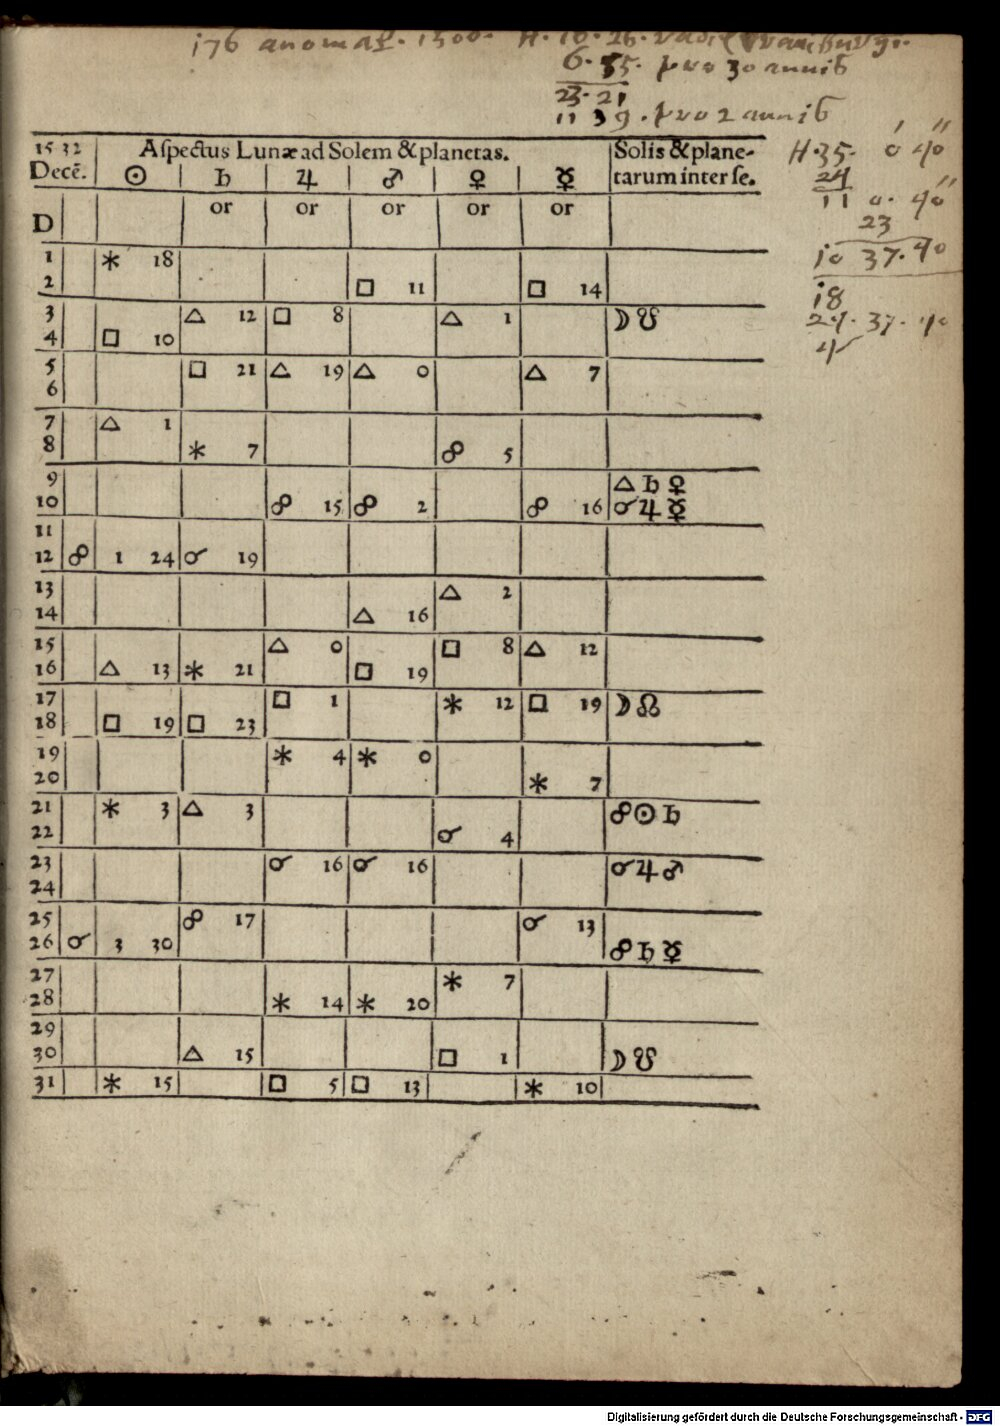 176 anomal. 1500. H. 16. 26.
6. 55. pro 30 annis
23. 21
11 39. pro 2 annis
H. 35. 0 40
24
11 0. 40
23
10 37. 40
18
29. 37. 40
1532 Aſpectus Lunæ ad Solem & planetas. Solis & plane-
Decē. ☉ ♄ ♃ ♂ ♀ ☿ tarum inter ſe.
D or or or or or
1 ⚹ 18
2 □ 11 □ 14
3 △ 12 □ 8 △ 1 ☽ ☋
4 □ 10
5 □ 21 △ 19 △ 0 △ 7
6
7 △ 1
8 ⚹ 7 ☍ 5
9 △ ♄ ♀
10 ☍ 15 ☍ 2 ☍ 16 ☌ ♃ ☿
11
12 ☍ 1 24 ☌ 19
13 △ 2
14 △ 16
15 △ 0 □ 8 △ 12
16 △ 13 ⚹ 21 □ 19
17 □ 1 ⚹ 12 □ 19 ☽ ☊
18 □ 19 □ 23
19 ⚹ 4 ⚹ 0
20 ⚹ 7
21 ⚹ 3 △ 3 ☍ ☉ ♄
22 ☌ 4
23 ☌ 16 ☌ 16 ☌ ♃ ♂
24
25 ☍ 17 ☌ 13
26 ☌ 3 30 ☍ ♄ ☿
27 ⚹ 7
28 ⚹ 14 ⚹ 20
29
30 △ 15 □ 1 ☽ ☋
31 ⚹ 15 □ 5 □ 13 ⚹ 10
Digitalisierung gefördert durch die Deutsche Forschungsgemeinschaft - DFG